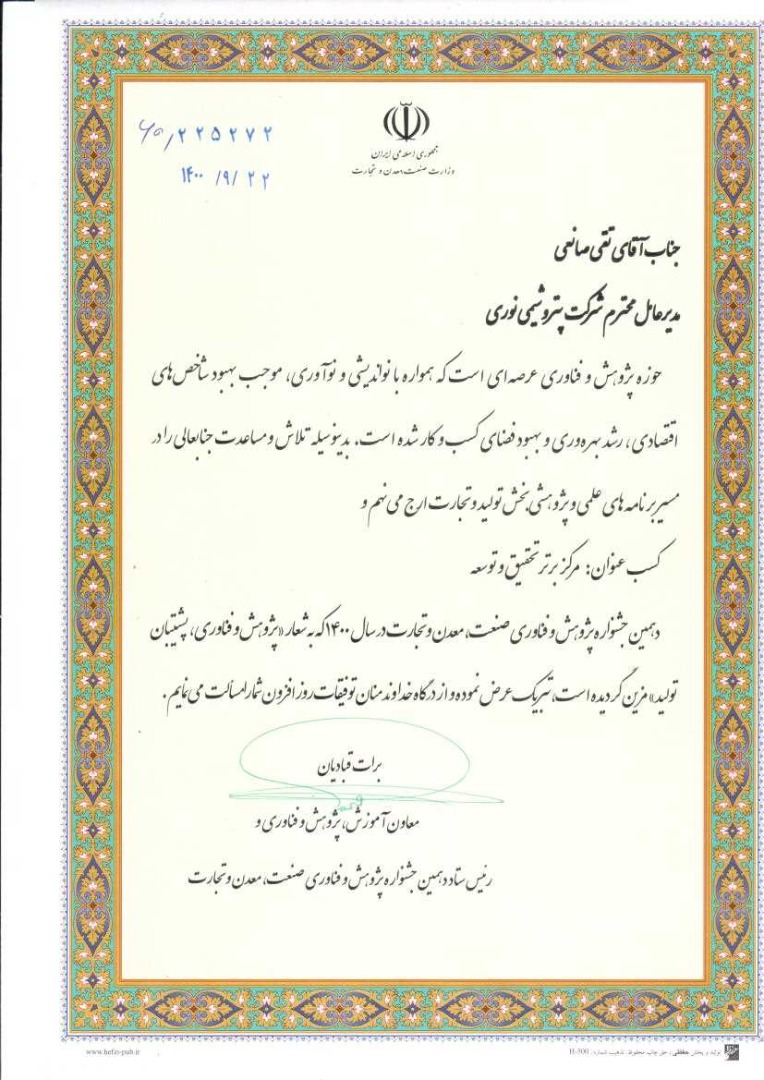 ۶۰/۲۲۵۲۷۲
۱۴۰۰/۹/۲۲
جمهوری اسلامی ایران
وزارت صنعت، معدن و تجارت
جناب آقای تقی صانعی
مدیرعامل محترم شرکت پتروشیمی نوری
حوزه پژوهش و فناوری عرصه‌ای است که همواره با نواندیشی و نوآوری، موجب بهبود شاخص‌های
اقتصادی، رشد بهره‌وری و بهبود فضای کسب و کار شده است. بدینوسیله تلاش و مساعدت جنابعالی را در
مسیر برنامه های علمی و پژوهشی بخش تولید و تجارت ارج می نهم و
کسب عنوان: مرکز برتر تحقیق و توسعه
دهمین جشنواره پژوهش و فناوری صنعت، معدن و تجارت در سال ۱۴۰۰ که به شعار «پژوهش و فناوری، پشتیبان
تولید» مزین گردیده است، تبریک عرض نموده و از درگاه خداوند منان توفیقات روزافزون شما را مسألت می نمایم.
برات قبادیان
معاون آموزش، پژوهش و فناوری و
رئیس ستاد دهمین جشنواره پژوهش و فناوری صنعت، معدن و تجارت
www.hefzi-pub.ir
تولید و پخش حفظی، حق چاپ محفوظ. تذهیب شماره: H-500